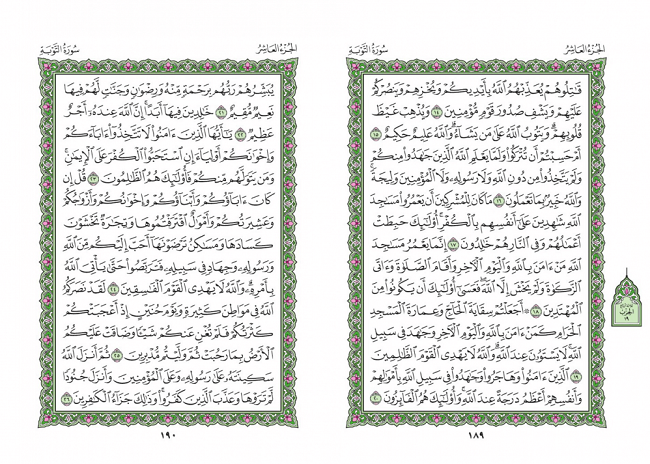 الجُزْءُ العَاشِرُ سُورَةُ التَّوْبَةِ
قَٰتِلُوهُمْ يُعَذِّبْهُمُ ٱللَّهُ بِأَيْدِيكُمْ وَيُخْزِهِمْ وَيَنصُرْكُمْ
عَلَيْهِمْ وَيَشْفِ صُدُورَ قَوْمٍ مُّؤْمِنِينَ ١٤ وَيُذْهِبْ غَيْظَ
قُلُوبِهِمْ وَيَتُوبُ ٱللَّهُ عَلَىٰ مَن يَشَآءُ وَٱللَّهُ عَلِيمٌ حَكِيمٌ ١٥
أَمْ حَسِبْتُمْ أَن تُتْرَكُوا۟ وَلَمَّا يَعْلَمِ ٱللَّهُ ٱلَّذِينَ جَٰهَدُوا۟ مِنكُمْ
وَلَمْ يَتَّخِذُوا۟ مِن دُونِ ٱللَّهِ وَلَا رَسُولِهِۦ وَلَا ٱلْمُؤْمِنِينَ وَلِيجَةً
وَٱللَّهُ خَبِيرٌۢ بِمَا تَعْمَلُونَ ١٦ مَا كَانَ لِلْمُشْرِكِينَ أَن يَعْمُرُوا۟ مَسَٰجِدَ
ٱللَّهِ شَٰهِدِينَ عَلَىٰٓ أَنفُسِهِم بِٱلْكُفْرِ أُو۟لَٰٓئِكَ حَبِطَتْ
أَعْمَٰلُهُمْ وَفِى ٱلنَّارِ هُمْ خَٰلِدُونَ ١٧ إِنَّمَا يَعْمُرُ مَسَٰجِدَ
ٱللَّهِ مَنْ ءَامَنَ بِٱللَّهِ وَٱلْيَوْمِ ٱلْءَاخِرِ وَأَقَامَ ٱلصَّلَوٰةَ وَءَاتَى
ٱلزَّكَوٰةَ وَلَمْ يَخْشَ إِلَّا ٱللَّهَ فَعَسَىٰٓ أُو۟لَٰٓئِكَ أَن يَكُونُوا۟ مِنَ
ٱلْمُهْتَدِينَ ١٨ ۞ أَجَعَلْتُمْ سِقَايَةَ ٱلْحَآجِّ وَعِمَارَةَ ٱلْمَسْجِدِ
ٱلْحَرَامِ كَمَنْ ءَامَنَ بِٱللَّهِ وَٱلْيَوْمِ ٱلْءَاخِرِ وَجَٰهَدَ فِى سَبِيلِ
ٱللَّهِ لَا يَسْتَوُۥنَ عِندَ ٱللَّهِ وَٱللَّهُ لَا يَهْدِى ٱلْقَوْمَ ٱلظَّٰلِمِينَ
١٩ ٱلَّذِينَ ءَامَنُوا۟ وَهَاجَرُوا۟ وَجَٰهَدُوا۟ فِى سَبِيلِ ٱللَّهِ بِأَمْوَٰلِهِمْ
وَأَنفُسِهِمْ أَعْظَمُ دَرَجَةً عِندَ ٱللَّهِ وَأُو۟لَٰٓئِكَ هُمُ ٱلْفَآئِزُونَ ٢٠
١٨٩
الحِزْبُ
١٩
الجُزْءُ العَاشِرُ سُورَةُ التَّوْبَةِ
يُبَشِّرُهُمْ رَبُّهُم بِرَحْمَةٍ مِّنْهُ وَرِضْوَٰنٍ وَجَنَّٰتٍ لَّهُمْ فِيهَا
نَعِيمٌ مُّقِيمٌ ٢١ خَٰلِدِينَ فِيهَآ أَبَدًا إِنَّ ٱللَّهَ عِندَهُۥٓ أَجْرٌ
عَظِيمٌ ٢٢ يَٰٓأَيُّهَا ٱلَّذِينَ ءَامَنُوا۟ لَا تَتَّخِذُوٓا۟ ءَابَآءَكُمْ
وَإِخْوَٰنَكُمْ أَوْلِيَآءَ إِنِ ٱسْتَحَبُّوا۟ ٱلْكُفْرَ عَلَى ٱلْإِيمَٰنِ
وَمَن يَتَوَلَّهُم مِّنكُمْ فَأُو۟لَٰٓئِكَ هُمُ ٱلظَّٰلِمُونَ ٢٣ قُلْ إِن
كَانَ ءَابَآؤُكُمْ وَأَبْنَآؤُكُمْ وَإِخْوَٰنُكُمْ وَأَزْوَٰجُكُمْ
وَعَشِيرَتُكُمْ وَأَمْوَٰلٌ ٱقْتَرَفْتُمُوهَا وَتِجَٰرَةٌ تَخْشَوْنَ
كَسَادَهَا وَمَسَٰكِنُ تَرْضَوْنَهَآ أَحَبَّ إِلَيْكُم مِّنَ ٱللَّهِ
وَرَسُولِهِۦ وَجِهَادٍ فِى سَبِيلِهِۦ فَتَرَبَّصُوا۟ حَتَّىٰ يَأْتِىَ ٱللَّهُ
بِأَمْرِهِۦ وَٱللَّهُ لَا يَهْدِى ٱلْقَوْمَ ٱلْفَٰسِقِينَ ٢٤ لَقَدْ نَصَرَكُمُ
ٱللَّهُ فِى مَوَاطِنَ كَثِيرَةٍ وَيَوْمَ حُنَيْنٍ إِذْ أَعْجَبَتْكُمْ
كَثْرَتُكُمْ فَلَمْ تُغْنِ عَنكُمْ شَيْـًٔا وَضَاقَتْ عَلَيْكُمُ
ٱلْأَرْضُ بِمَا رَحُبَتْ ثُمَّ وَلَّيْتُم مُّدْبِرِينَ ٢٥ ثُمَّ أَنزَلَ ٱللَّهُ
سَكِينَتَهُۥ عَلَىٰ رَسُولِهِۦ وَعَلَى ٱلْمُؤْمِنِينَ وَأَنزَلَ جُنُودًا
لَّمْ تَرَوْهَا وَعَذَّبَ ٱلَّذِينَ كَفَرُوا۟ وَذَٰلِكَ جَزَآءُ ٱلْكَٰفِرِينَ ٢٦
١٩٠